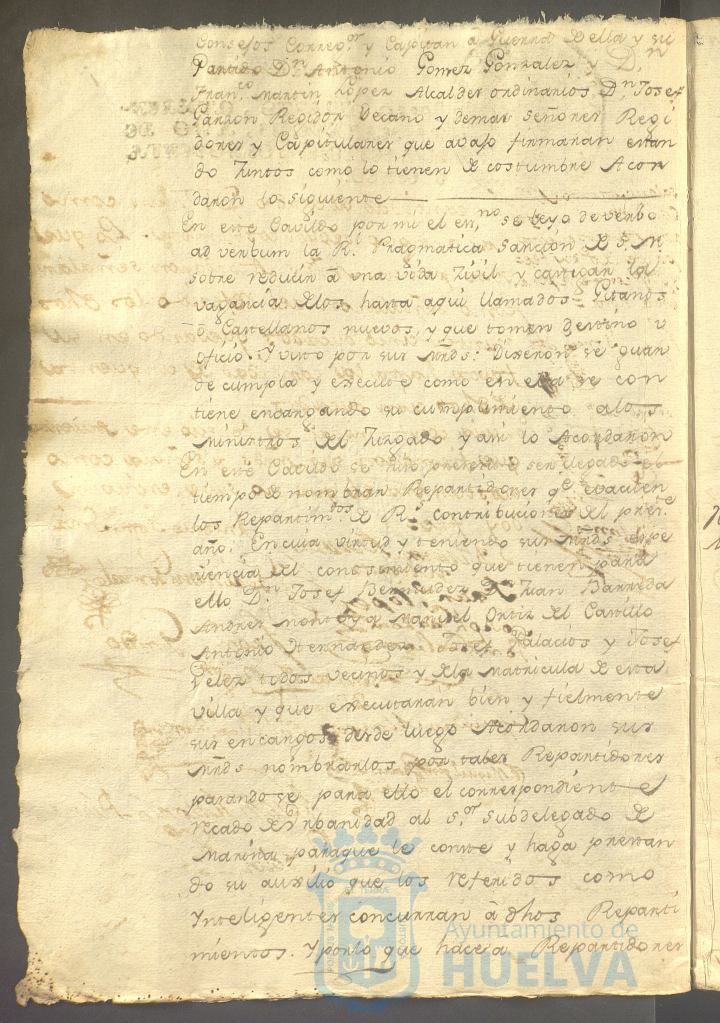 Consejos Correg.or y Capitan â Guerra de ella y su
Partido D.n Antonio Gomez Gonzalez y D.n
Fran.co Martin Lopez Alcaldes ordinarios D.n Josef
Garzon Regidor Decano y demas señores Regi
dores y Capitulares que avajo firmaran estan
do Juntos como lo tienen de costumbre Acor
daron lo siguiente
En este Cavildo por mi el es.no se leyo de verbo
ad verbum la R.l Pragmatica Sancion de S. M.
sobre reducir â una vida Zivil y castigar la
vagancia de los hasta aqui llamados Gitanos
ô Castellanos nuevos, y que tomen destino u
oficio. Y visto por sus mrds: Dixeron se guar
de cumpla y execute como en ella se con
tiene encargando su cumplimiento a los
Ministros del Juzgado y asi lo Acordaron
En este Cavildo se hizo presente ser llegado el
tiempo de nombrar Repartidores q.e evacuen
los Repartim.tos de R.s contribuciones del pres.te
año. En cuia virtud y teniendo sus mrds espe
riencia del conosimiento que tienen para
ello D.n Josef Bermudez D.n Juan Barreda
Andres Montoya Manuel Ortiz del Castillo
Antonio Hernandez Josef Palacios y Josef
Velez todos vecinos y de la Matricula de esta
villa y que executaran bien y fielmente
sus encargos desde luego Acordaron sus
mrds nombrarlos por tales Repartidores
pasandose para ello el correspondiente
recado de Urbanidad al S.or Subdelegado de
Marina paraque le conste y haga prestan
do su auxilio que los referidos como
Inteligentes concurran â dhos Reparti
mientos. Y por lo que hace a Repartidores
Ayuntamiento de
HUELVA